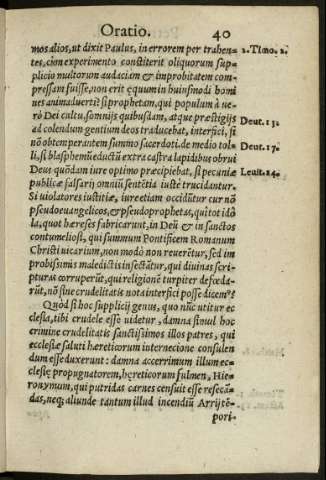 Oratio. 40
mos alios, ut dixit Paulus, in errorem per trahen= 2. Timo. 2.
tes, cùm experimento constiterit aliquorum sup=
plicio multorum audaciam & improbitatem com=
pressam fuisse, non erit ęquum in huiusmodi homi
nes animaduerti? si prophetam, qui populum à ue=
rò Dei cultu, somnijs quibusdam, atque præstigijs Deut. 13.
ad colendum gentium deos traducebat, interfici, si
nō obtemperantem summo sacerdoti, de medio tol= Deut. 17.
li, si blasphemū eductū extra castra lapidibus obrui
Deus quōdam iure optimo præcipiebat, si pecuniæ Leuit. 24.
publicæ falsarij omniū sentētia iustè trucidantur.
Si uiolatores iustitiæ, iure etiam occidūtur cur nō
pseudoeuangelicos, & pseudoprophetas, qui tot idō
la, quot hæreses fabricarunt, in Deū & in sanctos
contumeliosi, qui summum Pontificem Romanum
Christi uicarium, non modò non reuerētur, sed im
probissimis maledictis insectātur, qui diuinas scri=
pturas corruperūt, qui religionē turpiter defœda=
rūt, nō sine crudelitatis nota interfici posse dicem⁹?
Quòd si hoc supplicij genus, quo nūc utitur ec
clesia, tibi crudele esse uidetur, damna simul hoc
crimine crudelitatis sanctissimos illos patres, qui
ecclesiæ saluti hæreticorum internecione consulen
dum esse duxerunt: damna accerrimum illum ec=
clesiæ propugnatorem, hęreticorum fulmen, Hie=
ronymum, qui putridas carnes censuit esse resecā=
das, neq; aliunde tantum illud incendiū Arrij tē=
pori-